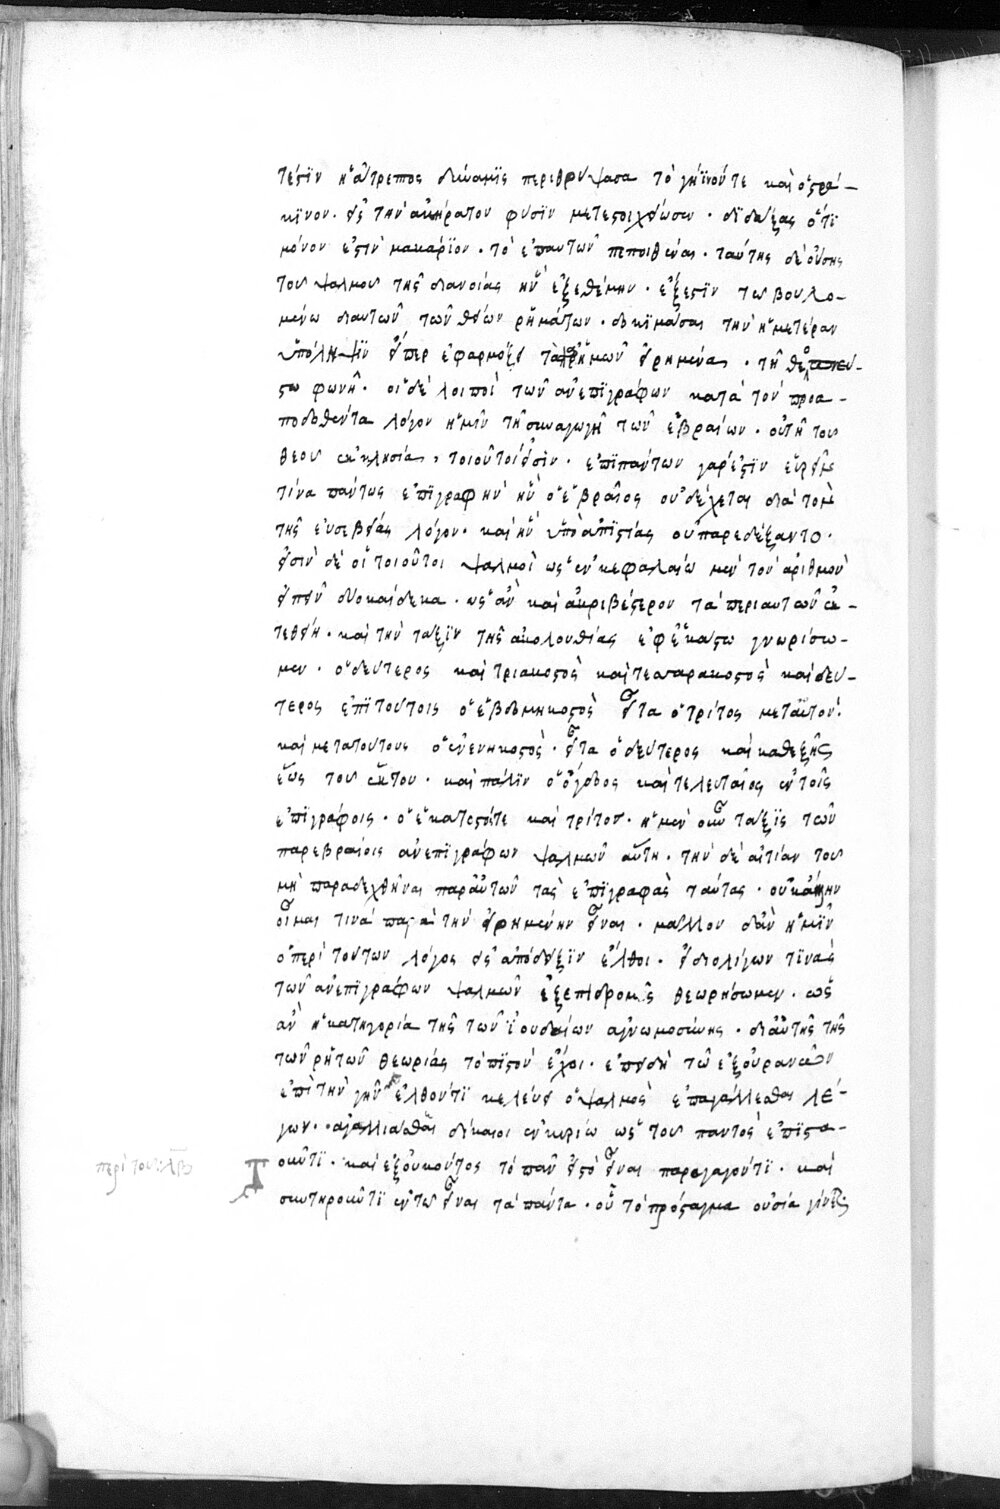 τέςϊν ἡ ἄτρεπτος δύναμϊς περιθρύψασα τὸ γήϊνόν τε καὶ ὀςρά-
κϊνον· εἰς τὴν ἀκήρατον φύσϊν μετεςοιχείωσεν· διδάξας ὅτϊ
μόνον ἐςὶν μακάρϊον· τὸ ἐπ αυτῶν πεποιθέναι· ταύτης δὲ οὔσης
τοῦ ψαλμοῦ τῆς διανοίας ἣν ἐξεθέμην· ἔξεςϊν τῶ βουλο-
μένω δι αυτῶν τῶν θείων ῥημάτων· δοκϊμάσαι τὴν ἡμετέραν
ὑπόληψϊν εἴπερ ἐφαρμόζει τὰ ἡμῶν εἰρημένα· τῆ θεοπνεύ-
ςω φωνῆ· οἱ δὲ λοιποὶ τῶν ἀνεπϊγράφων κατὰ τὸν προα-
ποδοθέντα λόγον ἡμῖν τῆ συναγωγῆ τῶν ἑβραίων· οὐ τῆ τοῦ
θεοῦ ἐκκλησία, τοιοῦτοί εἰσὶν· ἐπὶ πάντων γάρ ἐςϊν εὑρεῖν
τίνα πάντως ἐπϊγραφὴν ἣν ὁ ἑβραῖος οὐ δέχεται διὰ τὸν
τῆς εὐσεβείας λόγον· καὶ ἣν ὑπὸ ἀπϊςτίας οὐ παρεδέξαντο·
εἰσὶν δὲ οἱ τοιοῦτοι ψαλμοὶ ὡς ἐν κεφαλαίω μὲν τὸν ἀριθμὸν
εἰπεῖν δυοκαίδεκα· ὡς ἂν καὶ ἀκριβέςερον τὰ περὶ αυτῶν ἐκ-
τεθείη· καὶ τὴν τάξϊν τῆς ἀκολουθίας ἐφ ἑκάςω γνωρίσω-
μεν· ὁ δεύτερος καὶ τριακοςὸς καὶ τεσσαρακοςὸς καὶ δεύ-
τερος ἐπϊ τούτοις ὁ ἑβδομηκοςὸς εἶτα ὁ τρίτος μετ αὐτόν·
καὶ μετὰ τούτους ὁ ἐνενηκοςὸς· εἶτα ὁ δεύτερος καὶ καθεξῆς
ἕως τοῦ ἕκτου· καὶ πάλϊν ὁ ὄγδοος καὶ τελευταῖος ἐν τοῖς
ἐπϊγράφοις· ὁ ἑκατοςός τε καὶ τρίτος· ἡ μὲν οὖν τάξϊς τῶν
παρ ἑβραίοις ἀνεπϊγράφων ψαλμῶν αὕτη· τὴν δὲ αἰτίαν τοῦ
μὴ παραδεχθῆναι παρ αὐτῶν τὰς ἐπϊγραφὰς ταύτας· οὐκ ἄλλην
οἶμαι τινὰ παρὰ τὴν εἰρημένην εἶναι· μᾶλλον δ ἂν ἡμῖν
ὁ περὶ τούτων λόγος εἰς ἀπόδειξϊν ἔλθοι· εἰ δι ολίγων τϊνὰς
τῶν ἀνεπϊγράφων ψαλμῶν ἐξ επιδρομῆς θεωρήσωμεν· ὡς
ἂν ἡ κατηγορία τῆς τῶν ἰουδαίων ἀγνωμοσύνης· δι αὐτῆς τῆς
τῶν ῥητῶν θεωρίας τὸ πϊςὸν ἔχοι· ἐπειδὴ τῶ ἐξ οὐρανῶν
ἐπὶ τὴν γῆν ἐλθόντϊ κελεύει ὁ ψαλμὸς ἐπαγάλλεσθαι λέ-
γων· ἀγαλλιᾶσθαι δίκαιοι ἐν κυρίω ὡς τοῦ παντὸς ἐπϊςα-
τοῦντϊ· καὶ ἐξ οὐκ ὄντος τὸ πᾶν εἰς τὸ εἶναι παραγαγόντϊ· καὶ
συντηροῦντϊ ἐν τῶ εἶναι τὰ πάντα· οὗ τὸ πρόςαγμα οὐσία γίνεται
περὶ τοῦ λβ